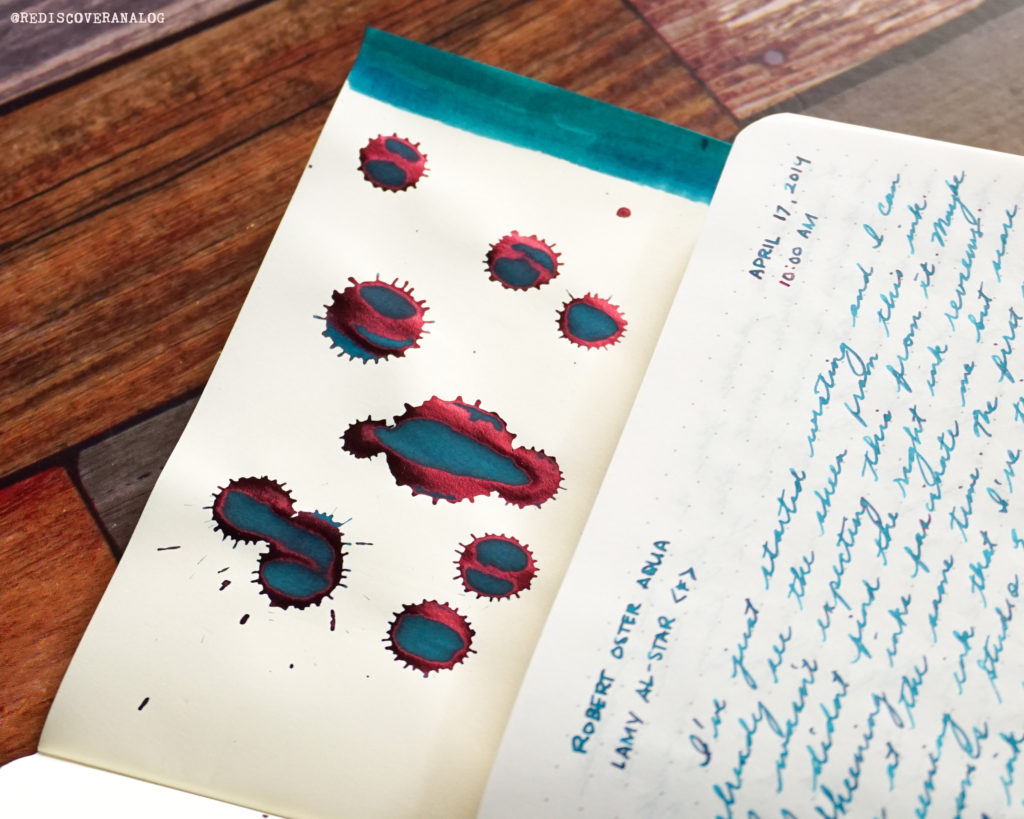 @REDISCOVERANALOG
APRIL 17, 2014
10:00 AM
ROBERT OSTER AQUA
LAMY AL-STAR <F>
I've just started writing and I can
already see the sheen from this ink.
I wasn't expecting this from it. Maybe
I didn't find the right ink reviews.
Sheening inks fascinate me but scare
at the same time. The first
ink that I've
Studio
ink